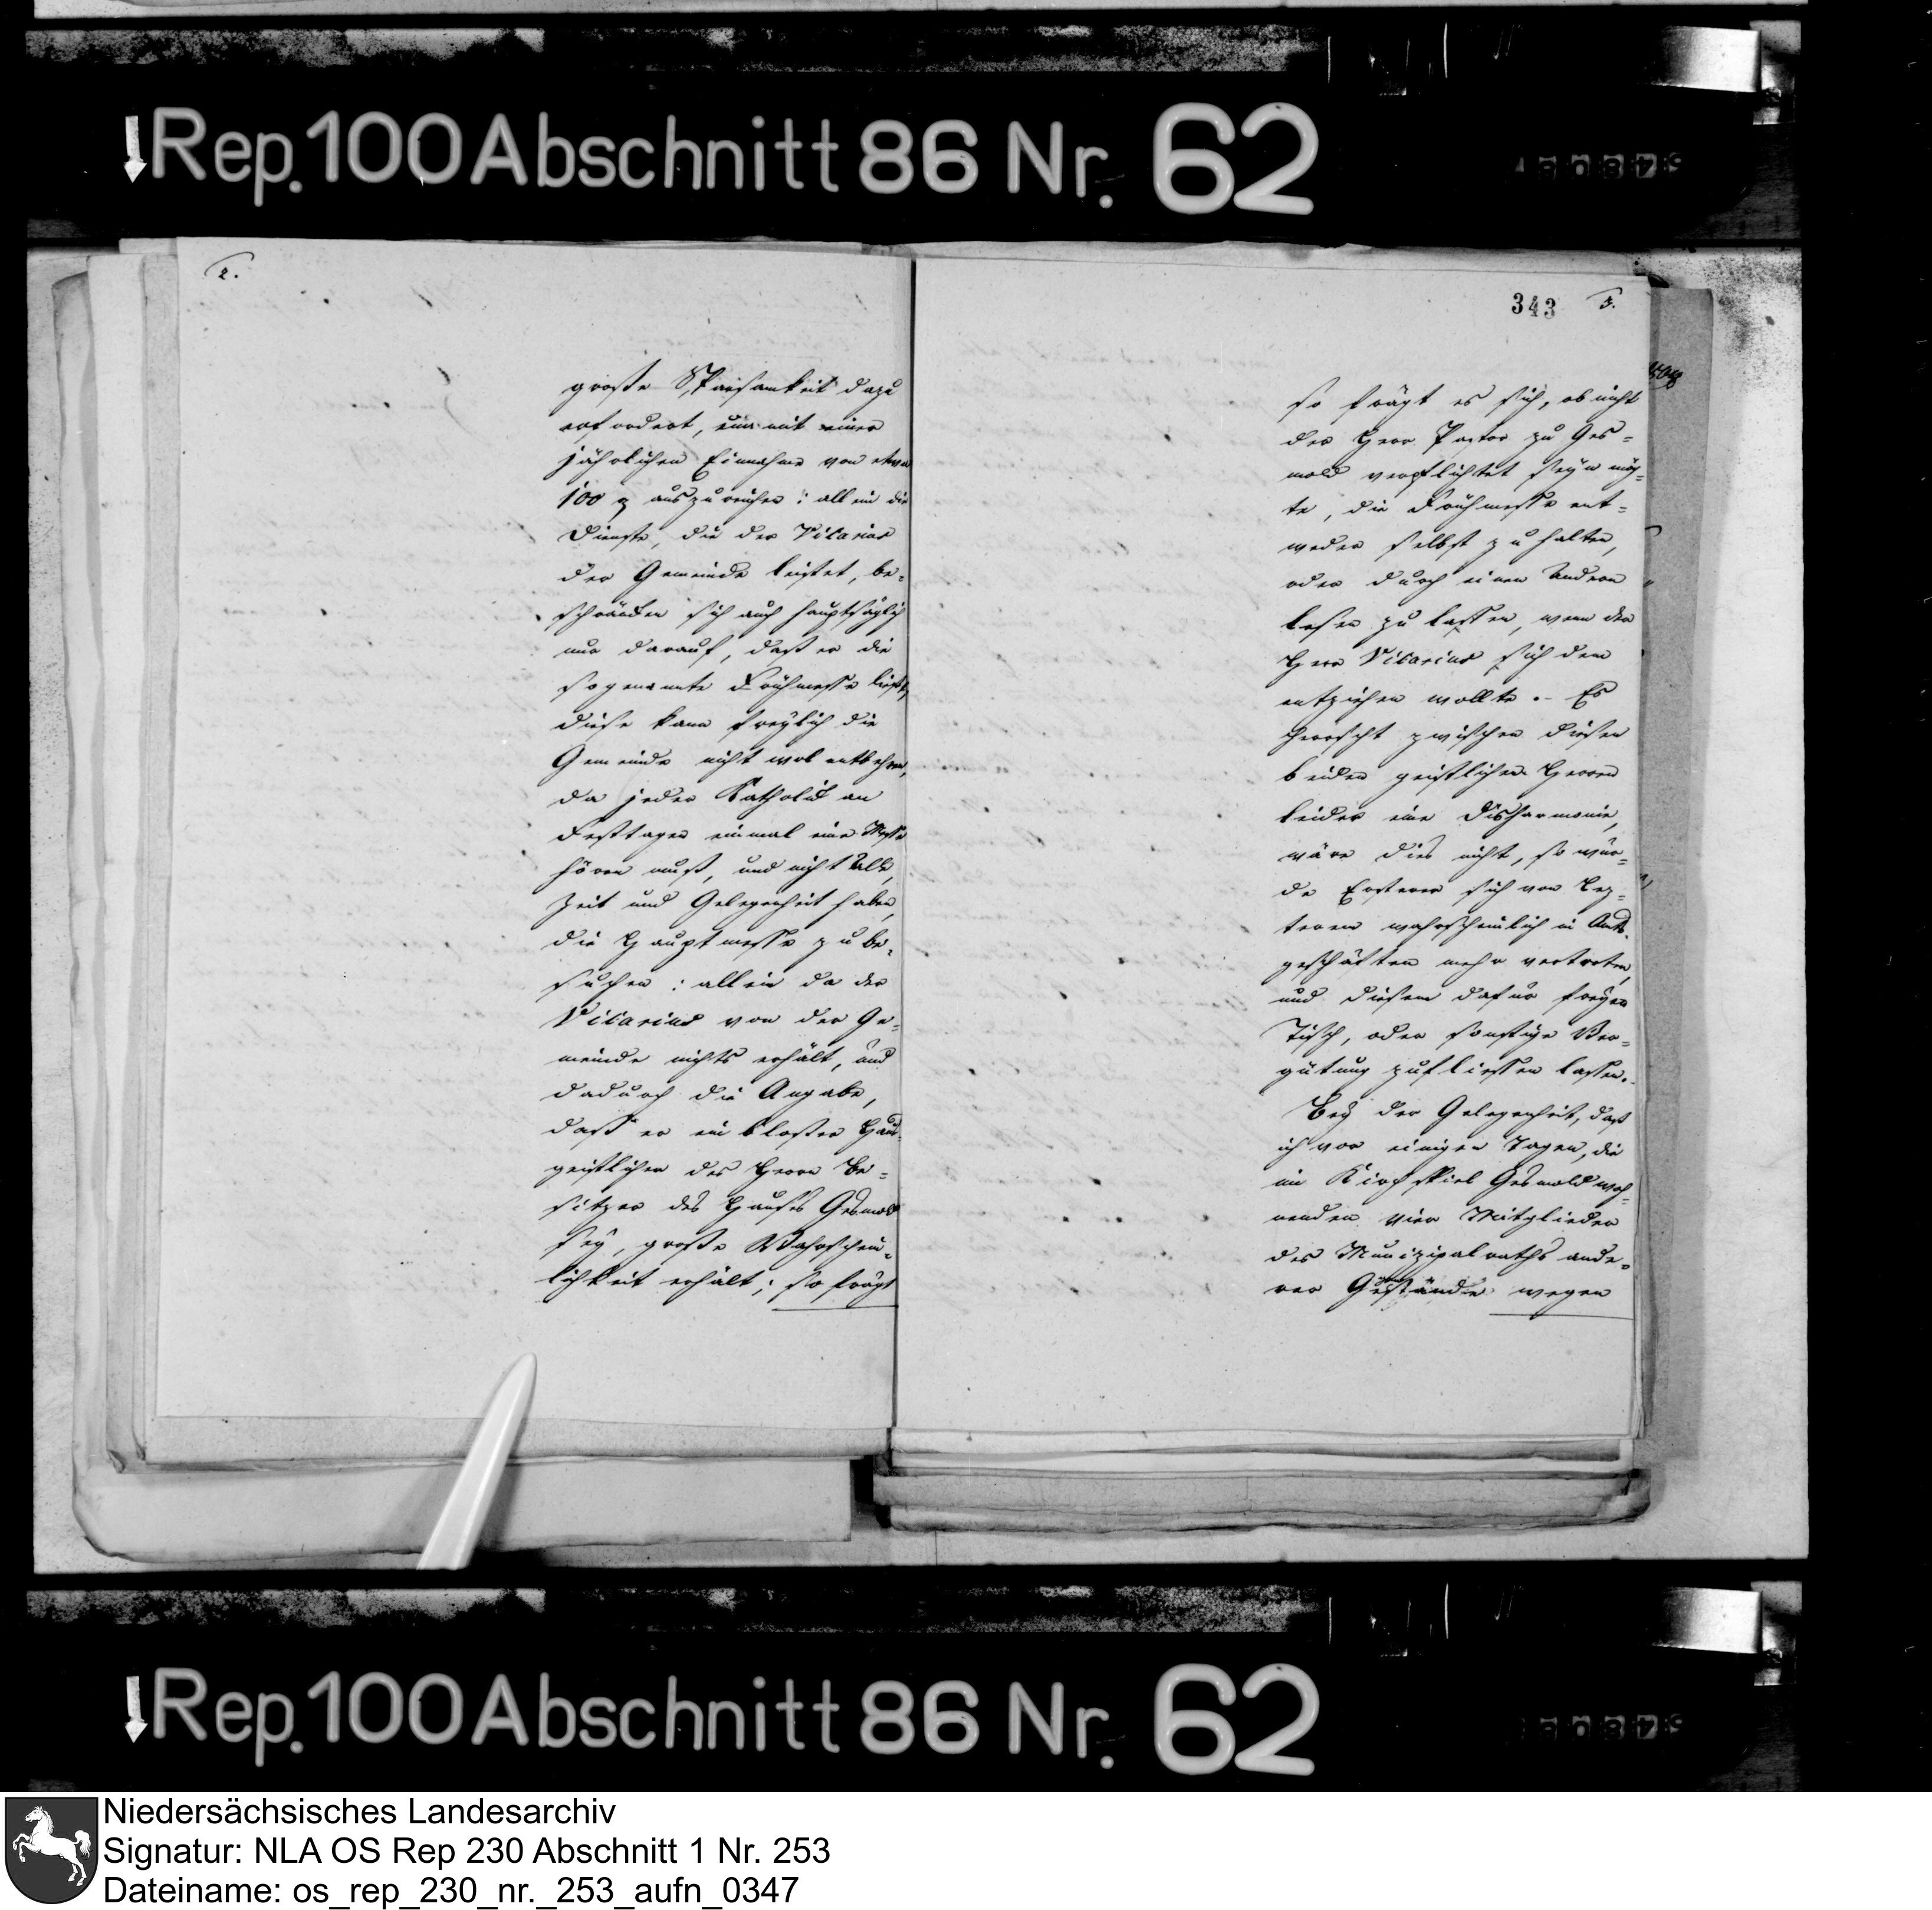 Rep. 100 Abschnitt 86 Nr. 62
2.
große Sparsamkeit dazu
erfordert, um mit einer
jährlichen Einnahme von etwa
100 auszureichen: allein die
Dienste, die der Vicarius
der Gemeinde leistet, be-
schränken sich auch hauptsächlich
nur darauf, daß er die
sogenannte Frühmesse liest,
diese kann freylich die
Gemeinde nicht wol entbehren,
da jeder Katholik an
Festtagen einmal eine Messe
hören muß, und nicht alle,
Zeit und Gelegenheit haben,
die Hauptmesse zu be-
suchen: allein da der
Vicarius von der Ge-
meinde nichts erhält, und
dadurch die Angabe,
daß er ein bloßer Haus-
geistlicher des Herrn Be-
sitzer des Hauses Gesmold
sey, große Wahrschein-
lichkeit erhält; so frägt
343
3.
so frägt es sich, ob nicht
der Herr Pastor zu Ges-
mold verpflichtet seyn mög-
te, die Frühmesse ent-
weder selbst zu halten,
oder durch einen Andern
lesen zu lassen, wenn der
Herr Vicarius sich dem
entziehen wollte. - Es
herrscht zwischen diesen
beiden geistlichen Herren
leider eine Disharmonie,
wäre dies nicht, so wür-
de Ersterer sich von Lez-
terem wahrscheinlich in Amts-
geschäften mehr vertreten,
und diesem dafür freyen
Tisch, oder sonstige Ver-
gütung zufliessen lassen.
Bey der Gelegenheit, daß
ich vor einigen Tagen, die
im Kirchspiel Gesmold woh-
nenden vier Mitglieder
des Munizipalraths ande-
rer Gegenstände wegen
Rep. 100 Abschnitt 86 Nr. 62
Niedersächsisches Landesarchiv
Signatur: NLA OS Rep 230 Abschnitt 1 Nr. 253
Dateiname: os_rep_230_nr._253_aufn_0347